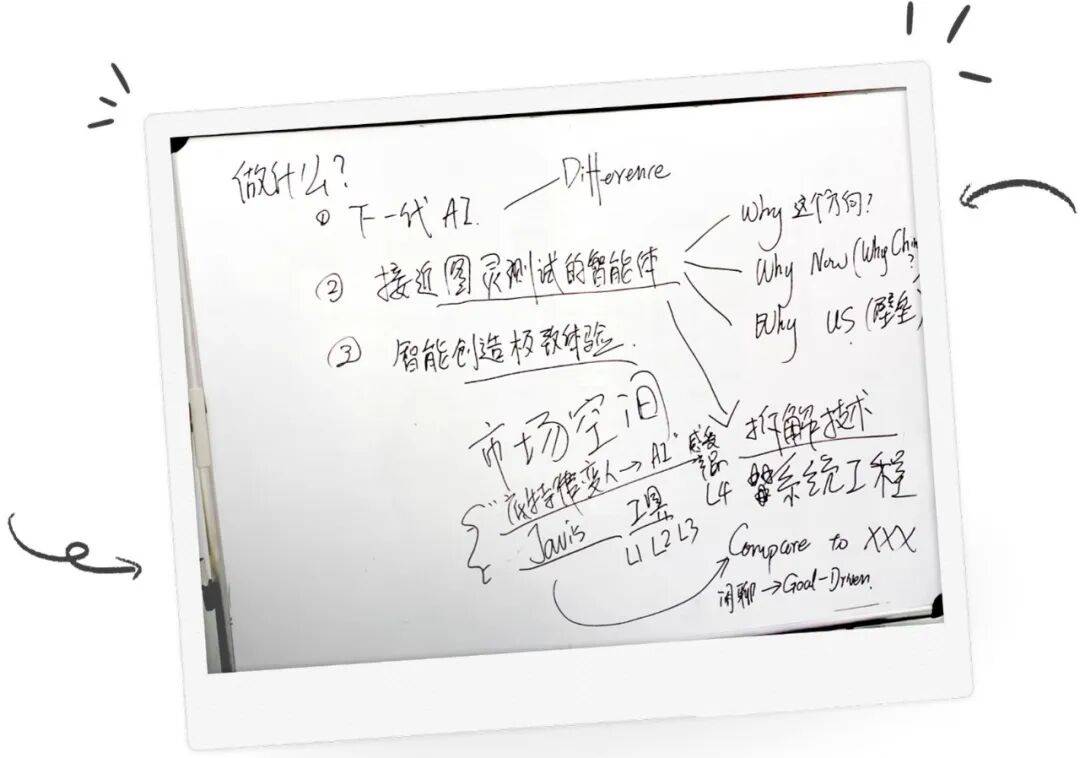 做什么?
① 下一代 AI. Difference
② 接近图灵测试的智能体
Why 这个方向?
Why Now (Why Chin
Why US (壁垒)
③ 智能创造极致体验.
市场空间
拆解技术
系统工程
底特律变人→AI 感受
L4
Javis 工具
L1 L2 L3
Compare to XXX
闲聊→Goal-Driven.